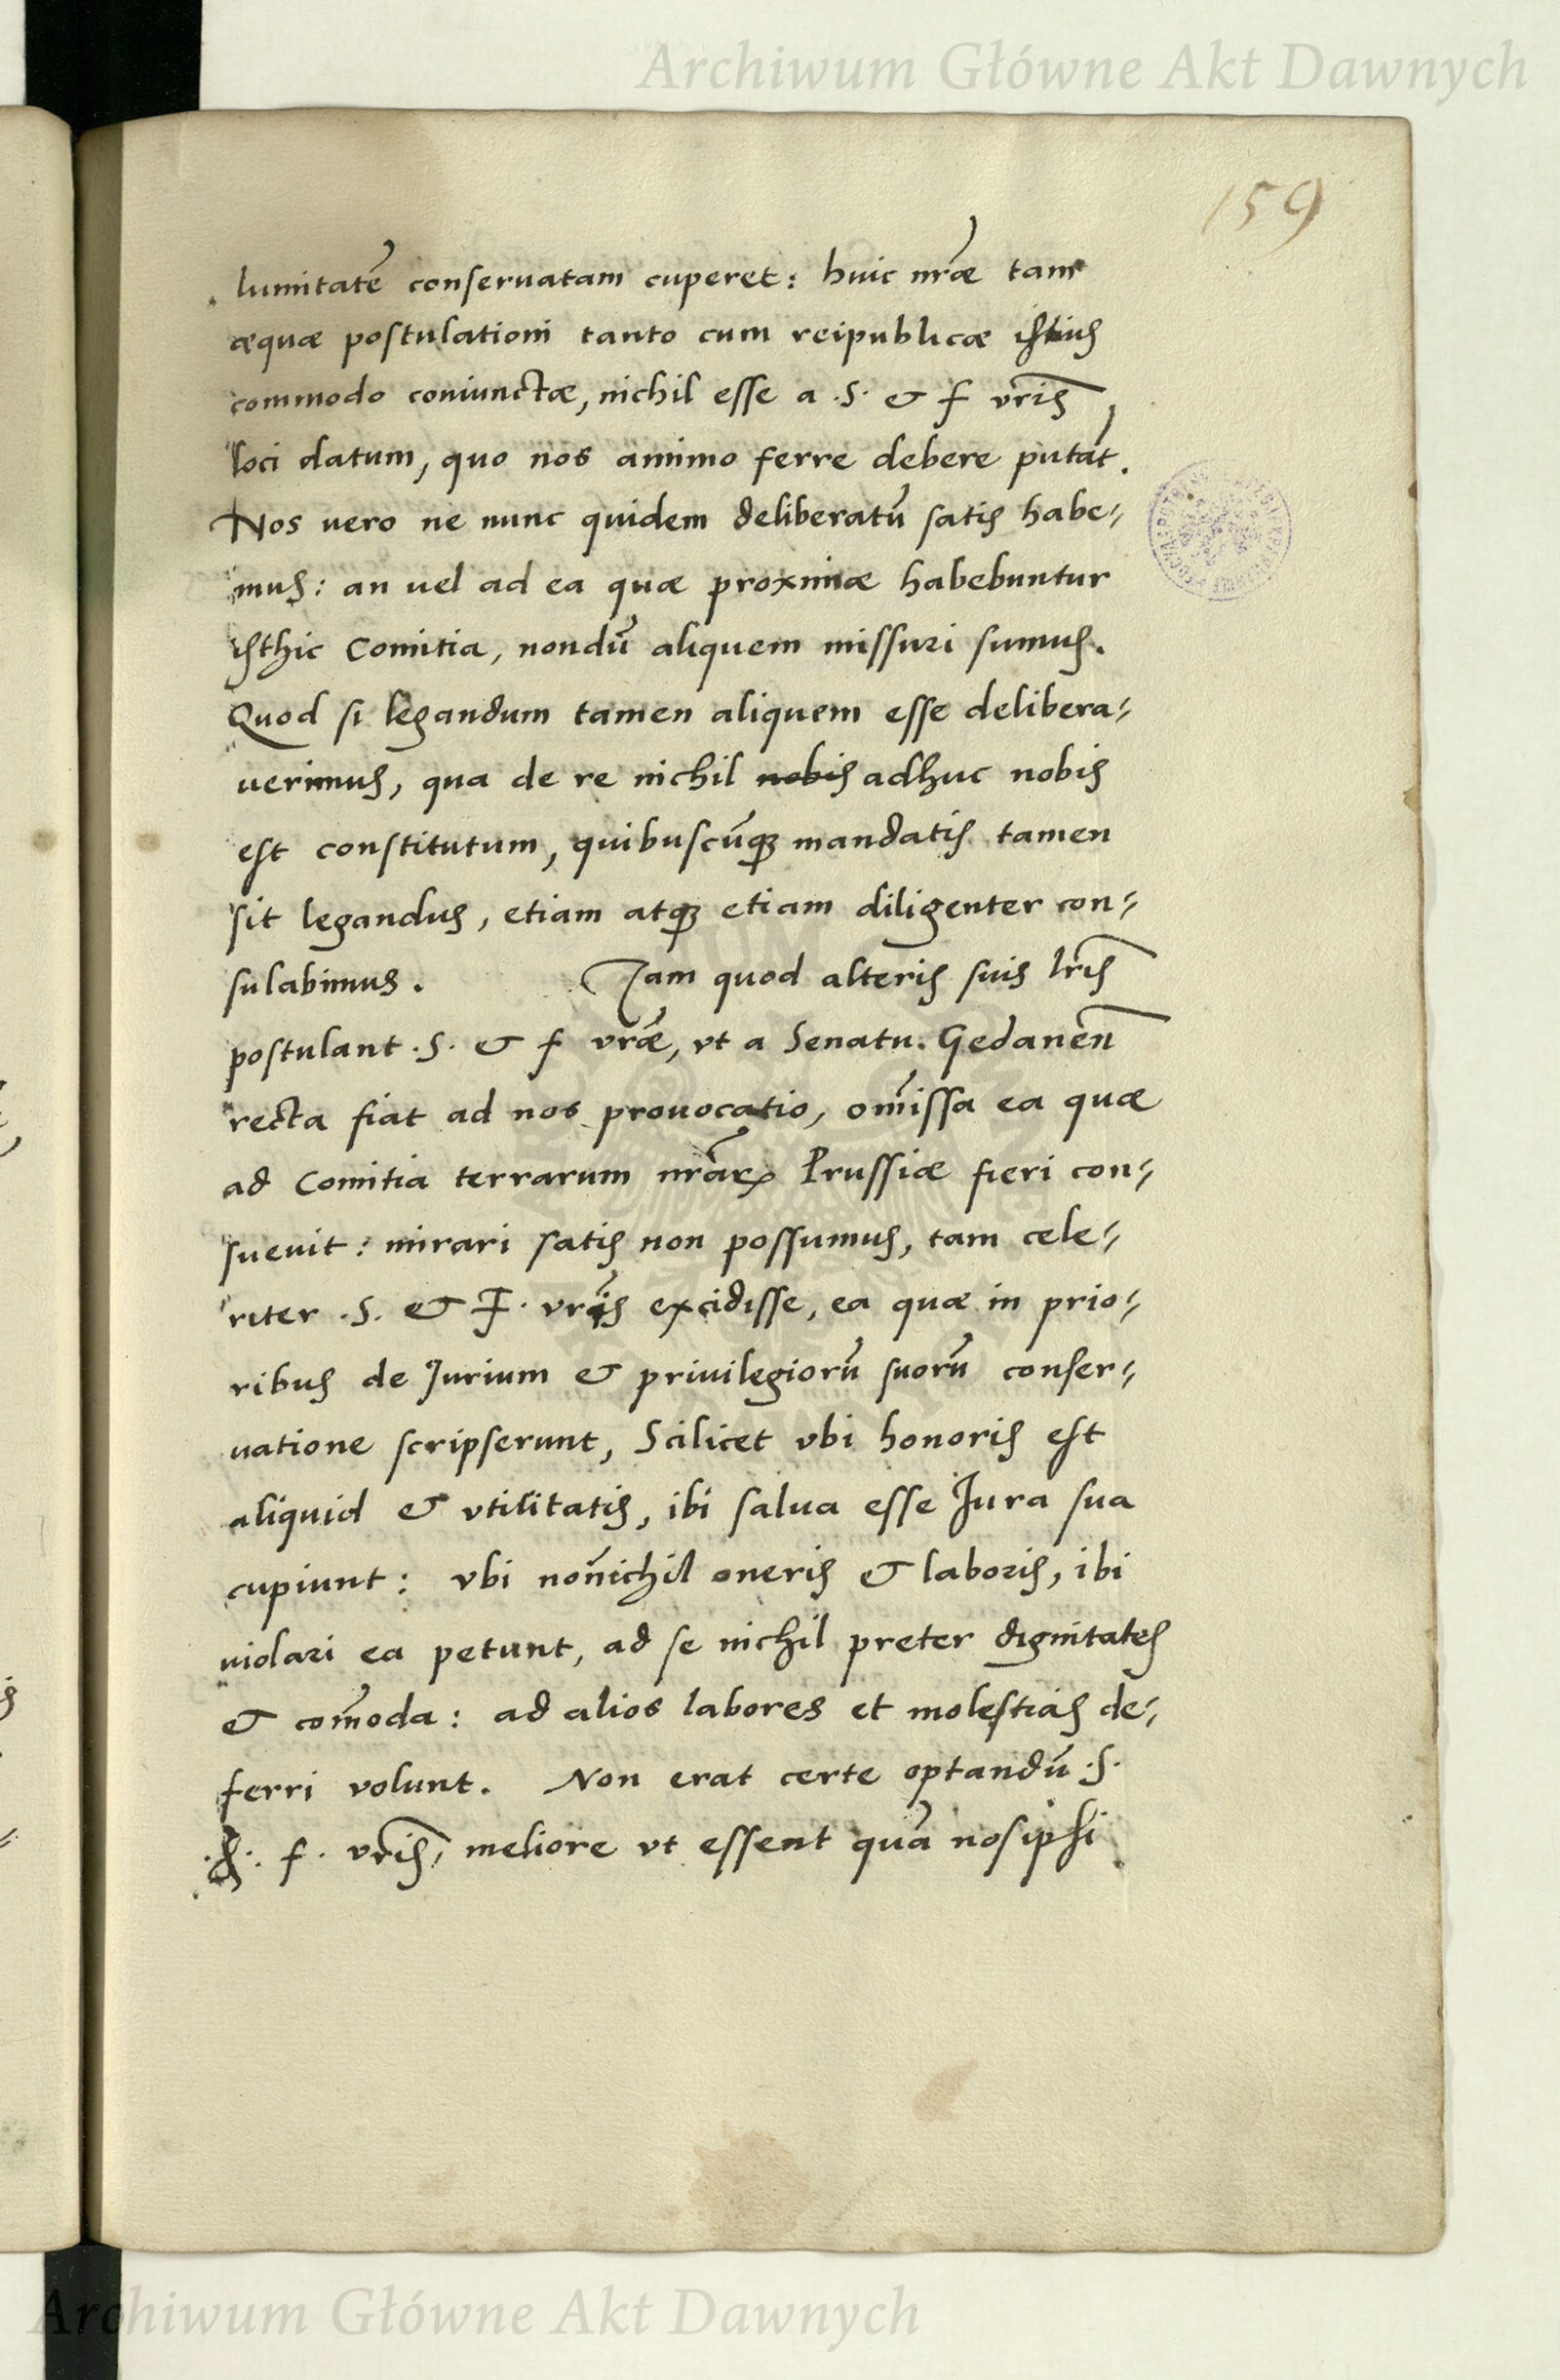 Archiwum Główne Akt Dawnych
159
lumitatē conseruatam cuperet: huic nr̄æ tam
æquæ postulationi tanto cum reipublicæ istius
commodo coniunctæ, nichil esse a .S. & f vr̄is
loci datum, quo nos animo ferre debere putāt.
Nos uero ne nunc quidem deliberatū satis habe-
mus: an uel ad ea quæ proximæ habebuntur
isthic Comitia, nondū aliquem missuri sumus.
Quod si legandum tamen aliquem esse delibera-
uerimus, qua de re nichil nobis adhuc nobis
est constitutum, quibuscūq₃ mandatis tamen
sit legandus, etiam atq₃ etiam diligenter con-
sulabimus. Jam quod alteris suis lr̄is
postulant .S. & f vr̄æ, vt a Senatu. Gedaneñ
recta fiat ad nos prouocatio, om̄issa ea quæ
ad Comitia terrarum nr̄aꝝ Prussiæ fieri con-
sueuit: mirari satis non possumus, tam cele-
riter .S. & F. vr̄is excidisse, ea quæ in prio-
ribus de Jurium & priuilegiorū suorū conser-
uatione scripserunt, Scilicet vbi honoris est
aliquid & vtilitatis, ibi salua esse Jura sua
cupiunt: vbi non̄ichil oneris & laboris, ibi
uiolari ea petunt, ad se nichil preter dignitates
& com̄oda: ad alios labores et molestias de-
ferri volunt. Non erat certe optandū .S.
f. vr̄is, meliore vt essent quā nosipsi
Archiwum Główne Akt Dawnych